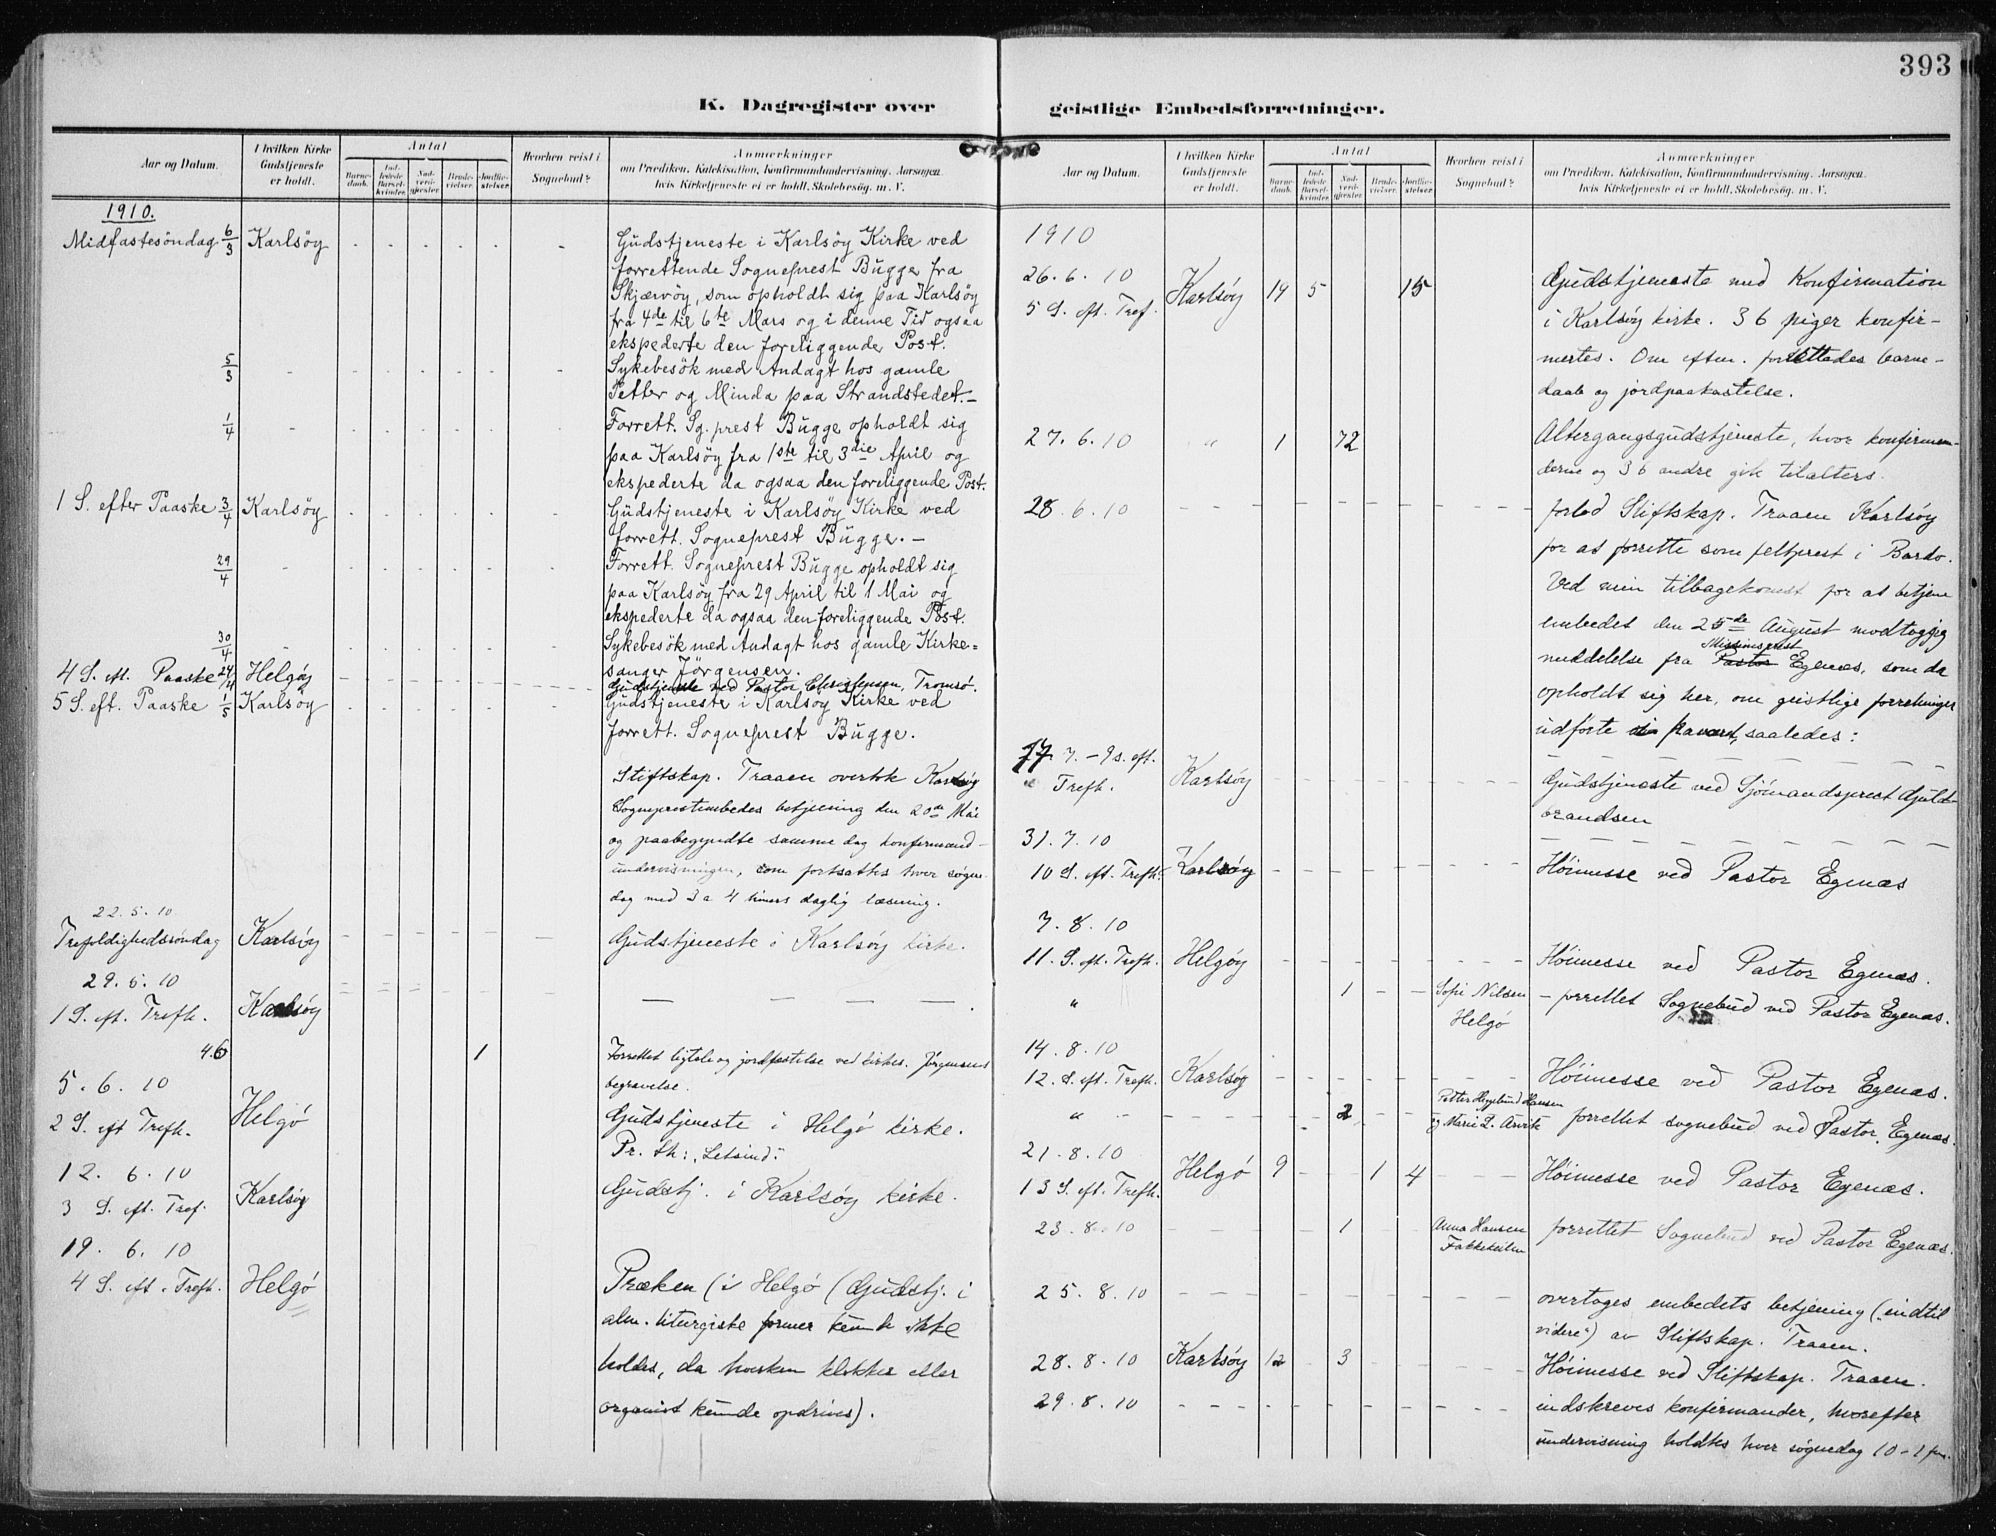 393
K. Dagregister over
geistlige Embedsforretninger.
Aar og Datum.
I hvilken Kirke Gudstjeneste er holdt.
Antal
Barnedaab.
Indledede Barselkvinder.
Nadverdgjester.
Brudevielser.
Jordfæstelser.
Hvorhen reist i Sognebud?
Anmærkninger
om Prædiken, Katekisation, Konfirmandundervisning, Aarsagen,
hvis Kirketjeneste ei er holdt, Skolebesøg. m. V.
1910.
Midfastesöndag 6/3 Karlsöy - - - - - - Gudstjeneste i Karlsöy Kirke ved
forrettende Sogneprest Bugge fra
Skjærvöy, som opholdt sig paa Karlsöy
fra 4de til 6te Mars og i denne Tid ogsaa
ekspederte den foreliggende Post.
5/3 - Sykebesök med Andagt hos gamle
Petter og Minda paa Strandstedet.-
1/4 - Forrett. Sg. prest Bugge opholdt sig
paa Karlsöy fra 1ste til 3die April og
ekspederte da ogsaa den foreliggende Post.
1 S. efter Paaske 3/4 Karlsöy - - - - - - Gudstjeneste i Karlsöy Kirke ved
forrett. Sogneprest Bugge. -
29/4 - Forrett. Sogneprest Bugge opholdt sig
paa Karlsöy fra 29 April til 1 Mai og
ekspederte da ogsaa den foreliggende Post.
30/4 - Sykebesök med Andagt hos gamle Kirke=
sanger Jörgensen.
4 S. eft. Paaske 24/4 Helgöy - - - - - - Gudstjeneste ved Pastor Christensen, Tromsö.
5 S. eft. Paaske 1/5 Karlsöy - - - - - - Gudstjeneste i Karlsöy Kirke ved
forrett. Sogneprest Bugge.
Stiftskap. Traaen overtok Karlsöy
Sogneprestembedes betjening den 20de Mai
og paabegyndte samme dag konfirmand-
undervisningen, som fortsattes hver søgne-
dag med 3 a 4 timers daglig læsning.
22.5.10
Trefoldighedssöndag Karlsöy - - - - - - Gudstjeneste i Karlsöy kirke.
29.5.10
1 S. eft. Trefh. Karlsöy - - - - - - — — —
4.6 1 Forrettet ligtale og jordfæstelse ved kirkes. Jörgensens
begravelse.
5.6.10
2 S. eft Trefh. Helgö Gudstjeneste i Helgö kirke.
Pr. th: "Letsind."
12.6.10
3 S. eft. Tref. Karlsöy Gudstj. i Karlsöy kirke.
19.6.10
4 S. eft. Trefh. Helgö Præken (i Helgö (Gudstj. i
alm. liturgiske former kunde ikke
holdes, da hverken klokker eller
organist kunde opdrives).
Aar og Datum.
I hvilken Kirke Gudstjeneste er holdt.
Antal
Barnedaab.
Indledede Barselkvinder.
Nadverdgjester.
Brudevielser.
Jordfæstelser.
Hvorhen reist i Sognebud?
Anmærkninger
om Prædiken, Katekisation, Konfirmandundervisning, Aarsagen,
hvis Kirketjeneste ei er holdt, Skolebesøg. m. V.
1910
26.6.10
5 S. eft. Tref. Karlsöy 14 5 15 Gudstjeneste med Konfirmation
i Karlsöy kirke. 36 piger konfir-
mertes. Om eften. forrettedes barne-
daab og jordpaakastelse.
27.6.10 " 1 72 Altergangsgudstjeneste, hvor konfirman-
derne og 36 andre gik tilalters.
28.6.10 - - - - - - - forlod Stiftskap. Traaen Karlsöy
for at forrette som feltprest i Bardo.
Ved min tilbagekomst for at betjene
embedet den 25de August modtog jeg
meddelelse fra Pastor Missionsprest Egenæs, som da
opholdt sig her, om geistlige forretninger
udförte, saaledes:
17.7. - 9 S. eft.
Trefh. Karlsöy - - - - - - Gudstjeneste ved Sjömandsprest Guld-
brandsen
31.7.10
10 S. eft. Trefh. Karlsöy - - - - - - Höimesse ved Pastor Egenæs
7.8.10
11. S. eft. Trefh. Helgöy - - - - - - Höimesse ved Pastor Egenæs.
" 1 - - Sofie Nilsen Helgö - forrettet Sognebud ved Pastor Egenæs.
14.8.10
12. S. eft. Trefh. Karlsöy - - - - - - Höimesse ved Pastor Egenæs.
" - 2 - - Petter Hansen og Marie forrettet sognebud ved Pastor Egenæs.
21.8.10
13 S. eft. Trefh. Helgö 9 - - 1 4 - Höimesse ved Pastor Egenæs.
23.8.10 - - - 1 - - Anna Hansen forrettet Sognebud ved Pastor Egenæs.
25.8.10 - - - - - - - overtoges embedets betjening ("indtil
videre") av Stiftskap. Traaen.
28.8.10 Karlsöy 12 - 3 - - - Höimesse ved Stiftskap. Traaen.
29.8.10 - - - - - - - indskreves konfirmander, hvorefter
undervisning holdtes hver søgnedag 10-1 fm.